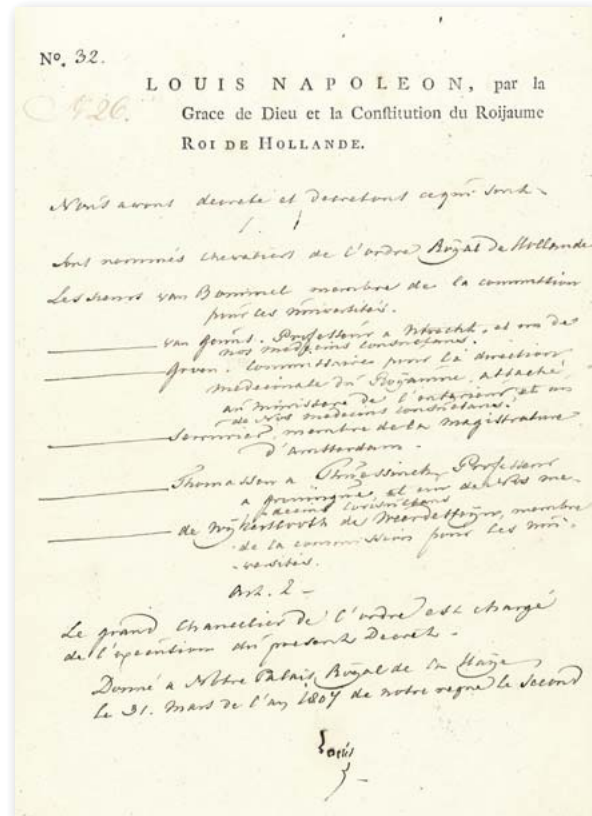 Nº. 32.
Nº 26.
LOUIS NAPOLEON, par la
Grace de Dieu et la Conſtitution du Roijaume
ROI DE HOLLANDE.
Nous avons décrété et décrétons ce qui suit
Art. 1
Sont nommés Chevaliers de l'ordre Royal de Hollande
Les sieurs van Bommel membre de la commission
pour les universités.
van Geuns. Professeur a Utrecht, et un de
nos médecins consultans.
Commissaire pour la direction
médecinale du Royaume, attaché
au ministère de l'interieur, et un
de Nos médecins consultans.
Serrurier, membre de la magistrature
d'Amsterdam.
Thomassen a Thuessinck, Professeur
a Groningue et un de Nos mé-
decins consultans
de Wijkerslooth de Weerdesteijn, membre
de la commission pour les uni-
-versités.
Art. 2 -
Le grand Chancelier de l'ordre est chargé
de l'execution du présent Décret.
Donné a Notre Palais Royal de la Haije
le 31. Mars de l'an 1807 de notre regne le second
Louis